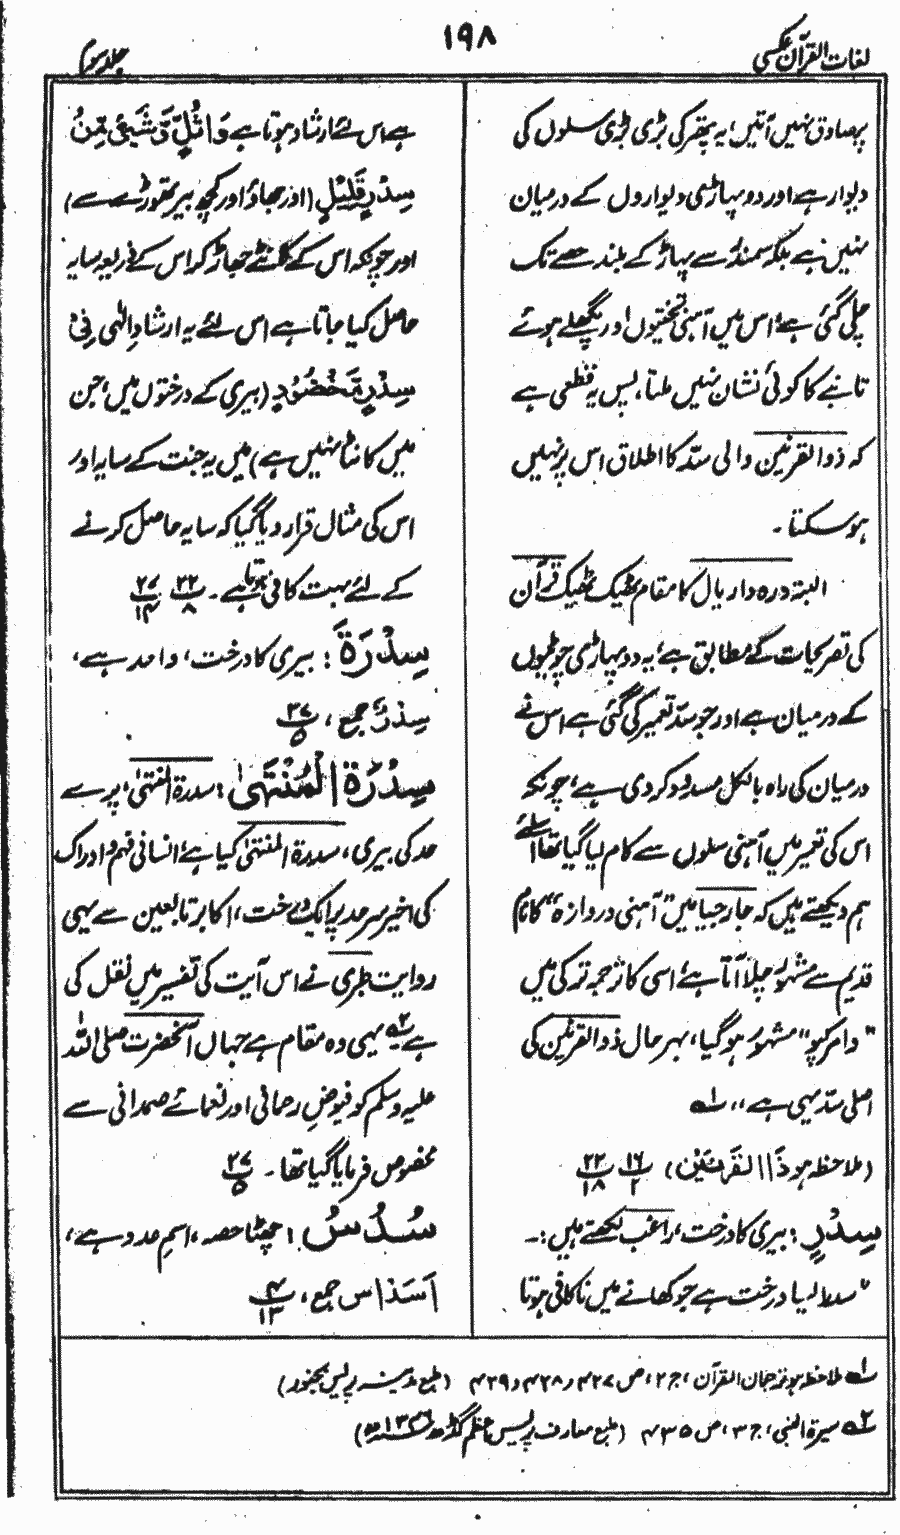 لغات القرآن عکسی
۱۹۸
جلد سوم
پرصادق نہیں آتیں، یہ پتھر کی بڑی بڑی سلوں کی
دیوار ہے اور دو پہاڑی دیواروں کے درمیان
نہیں ہے بلکہ سمندر سے پہاڑ کے بلند حصے تک
چلی گئی ہے، اس میں آہنی تختیوں اور پگھلے ہوئے
تانبے کا کوئی نشان نہیں ملتا، پس یہ قطعی ہے
کہ ذوالقرنین والی سدّ کا اطلاق اس پر نہیں
ہو سکتا۔
البتہ درہ داریال کا مقام ٹھیک ٹھیک قرآن
کی تصریحات کے مطابق ہے، یہ دو پہاڑی چوٹیوں
کے درمیان ہے اور جو سدّ تعمیر کی گئی ہے اس نے
درمیان کی راہ بالکل مسدود کر دی ہے، چونکہ
اس کی تعمیر میں آہنی سلوں سے کام لیا گیا تھا اسلئے
ہم دیکھتے ہیں کہ جارجیا میں "آہنی دروازہ" کا نام
قدیم سے مشہور چلا آتا ہے، اسی کا ترجمہ ترکی میں
"دامر کپو" مشہور ہو گیا، بہرحال ذوالقرنین کی
اصلی سدّ یہی ہے،، ۱ھ
(ملاحظہ ہو ذَا الْقَرْنَیْنِ) ۱۶/۲ ۲۲/۱۸
سِدْرٍ : بیری کا درخت، راغب لکھتے ہیں :۔
"سدر ایسا درخت ہے جو کھانے میں ناکافی ہوتا
ہے اس لئے ارشاد ہوتا ہے وَاَثْلٍ وَّشَیْءٍ مِّنْ
سِدْرٍ قَلِیْلٍ (اور جھاؤ اور کچھ بیر تھوڑے سے)
اور چونکہ اس کے کانٹے جھاڑ کر اس کے ذریعہ سایہ
حاصل کیا جاتا ہے اس لئے یہ ارشادِ الٰہی فِیْ
سِدْرٍ مَّخْضُوْدٍ (بیری کے درختوں میں، جن
میں کانٹا نہیں ہے) میں یہ جنت کے سایہ اور
اس کی مثال قرار دیا گیا کہ سایہ حاصل کرنے
کے لئے بہت کافی ہوتا ہے۔ ۲۲/۸ ۲۷/۱۴
سِدْرَۃٌ : بیری کا درخت، واحد ہے،
سِدْرٌ جمع، ۲۷/۵
سِدْرَۃُ الْمُنْتَہٰی : سدرۃ المنتہٰی، پرے
حد کی بیری، سدرۃ المنتہٰی کیا ہے، انسانی فہم و ادراک
کی اخیر سرحد پر ایک درخت، اکابر تابعین سے یہی
روایت طبری نے اس آیت کی تفسیر میں نقل کی
ہے ۲ھ یہی وہ مقام ہے جہاں آنحضرت صلی اللہ
علیہ وسلم کو فیوضِ رحمانی اور نعمائے صمدانی سے
مخصوص فرمایا گیا تھا۔ ۲۷/۵
سُدُسٌ : چھٹا حصہ، اسم عدد ہے،
اَسْدَاس جمع، ۴/۱۳
۱ھ ملاحظہ ہو ترجمان القرآن، ج ۲، ص ۴۲۷ و ۴۲۸ و ۴۲۹ (طبع مدینہ پریس بجنور)
۲ھ سیرۃ النبی، ج ۳، ص ۴۳۵ (طبع معارف پریس اعظم گڑھ)